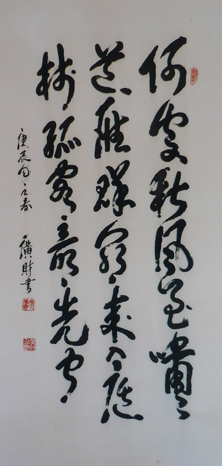 何處秋風至蕭々
送雁群朝來入庭
樹孤客最先聞
庚辰
書